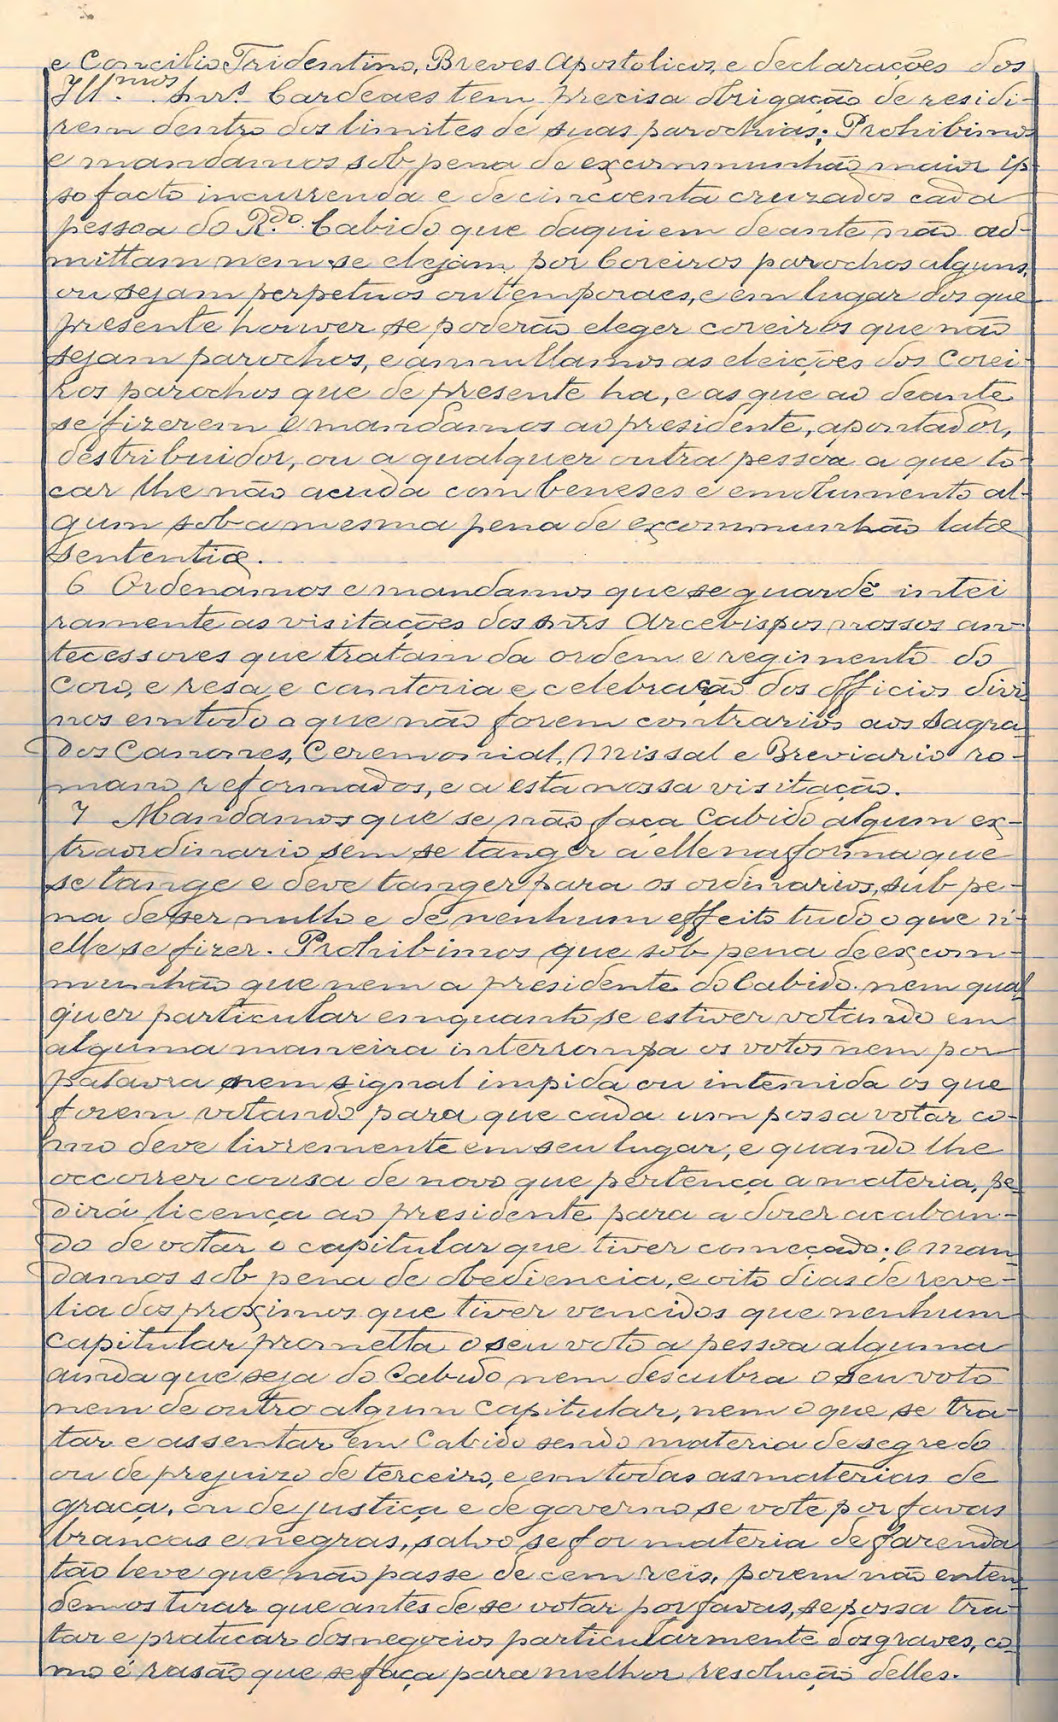 e Concilio Tridentino, Breves Apostolicos, e declarações dos
Ill.mos Snrs. Cardeaes tem precisa obrigação de residi-
rem dentro dos limites de suas parochias; Prohibimos
e mandamos sob pena de excommunhão maior ip-
so facto incurrenda e de cincoenta cruzados cada
pessoa do R.do Cabido que daqui em deante não ad-
mittam nem se elejam por Coreiros parochos alguns,
ou sejam perpetuos ou temporaes, e em lugar dos que
presente houver se poderão eleger coreiros que não
sejam parochos, e annullamos as eleições dos Corei-
ros parochos que de presente ha, e as que ao deante
se fizerem e mandamos ao presidente, apontador,
destribuidor, ou a qualquer outra pessoa a que to-
car lhe não acuda com beneses e emolumento al-
gum sob a mesma pena de excommunhão latæ
sententiæ.
6 Ordenamos e mandamos que se guardẽ intei
ramente as visitações dos snrs Arcebispos nossos an-
tecessores que tratam da ordem e regimento do
Coro, e resa, e cantoria e celebração dos officios divi
nos em todo o que não forem contrarios aos Sagra-
dos Canones, Ceremonial, Missal e Breviario ro-
mano reformados, e a esta nossa visitação.
7 Mandamos que se não faça Cabido algum ex-
traordinario sem se tanger a elle na forma que
se tange e deve tanger para os ordinarios, sub pe-
na de ser nullo e de nenhum effeito tudo o que n'-
elle se fizer. Prohibimos que sob pena de excom-
munhão que nem a presidente do Cabido nem qual
quer particular emquanto se estiver votando em
alguma maneira interrompa os votos nem por
palavra nem signal impida ou intemida os que
forem votando para que cada um possa votar co-
mo deve livremente em seu lugar, e quando lhe
occorrer cousa de novo que pertença a materia, pe-
dirá licença ao presidente para a dizer acaban-
do de votar o capitular que tiver começado; e man
damos sob pena de obediencia, e oito dias de reve-
lia dos proximos que tiver vencidos que nenhum
capitular prometta o seu voto a pessoa alguma
ainda que seja do Cabido nem descubra o seu voto
nem de outro algum capitular, nem o que se tra-
tar e assentar em Cabido sendo materia de segredo
ou de prejuizo de terceiro, e em todas as materias de
graça, ou de justiça e de governo se vote por favas
brancas e negras, salvo se for materia de fazenda
tão leve que não passe de cem reis, porem não enten-
demos tirar que antes de se votar por favas, se possa tra-
tar e praticar dos negocios particularmente dos graves, co-
mo é rasão que se faça para melhor resolução delles.